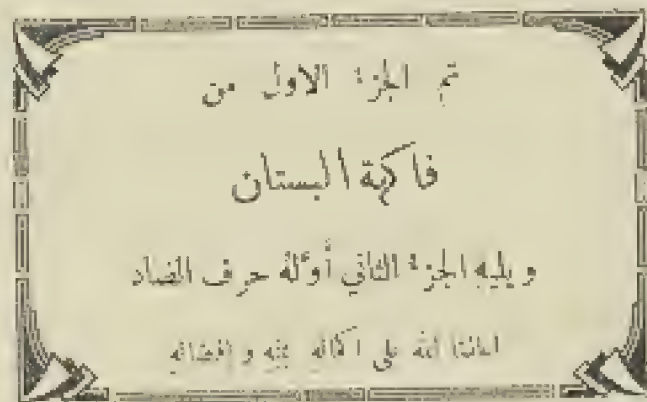 تم الجزء الاول من
فاكهة البستان
ويليه الجزء الثاني أوّلهُ حرف الضاد
اعاننا الله على اكماله بمنه وافضاله